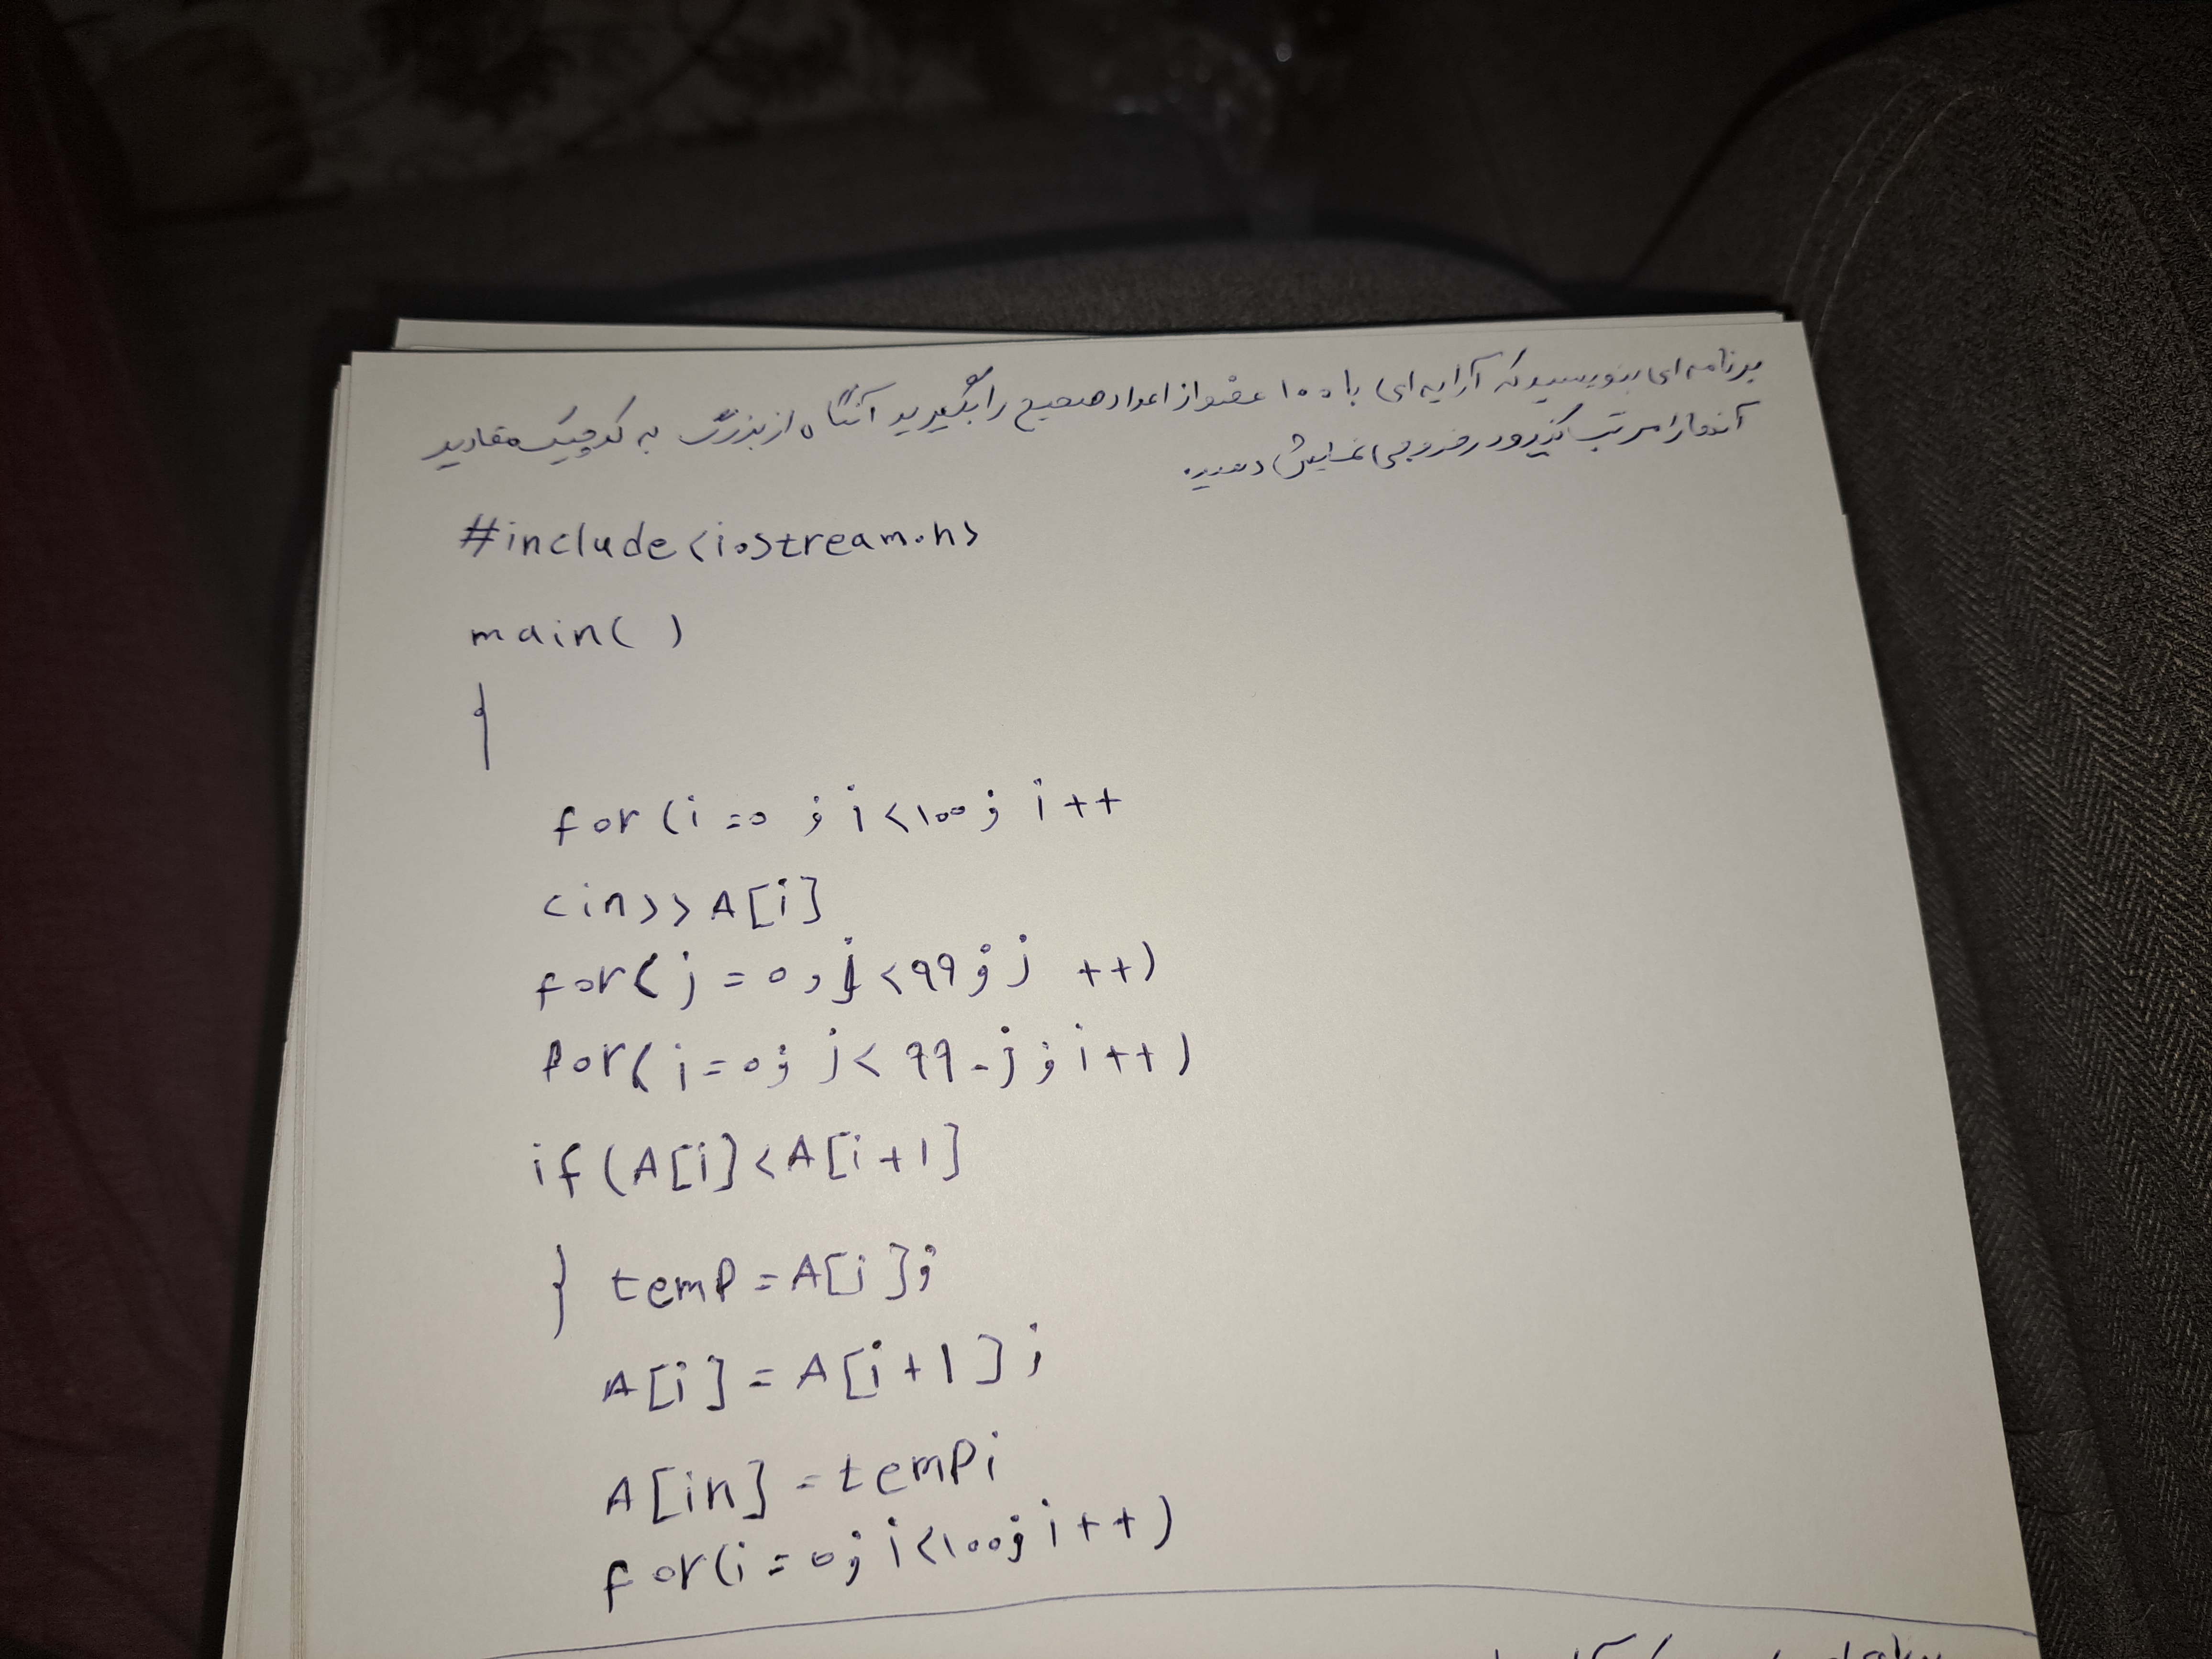 برنامه‌ای بنویسید که آرایه‌ای با ۱۰۰ عضو از اعداد صحیح را بگیرید آنگاه از بزرگ به کوچک مقادیر
آنها را مرتب کند و در خروجی نمایش دهید.
#include<iostream.h>
main( )
{
for(i=0 ; i<100; i++
cin>>A[i]
for(j=0;j<99;j++)
for(i=0; j<99-j;i++)
if(A[i]<A[i+1]
} temp=A[i];
A[i]=A[i+1];
A[in]=tempi
for(i=0; i<100;i++)